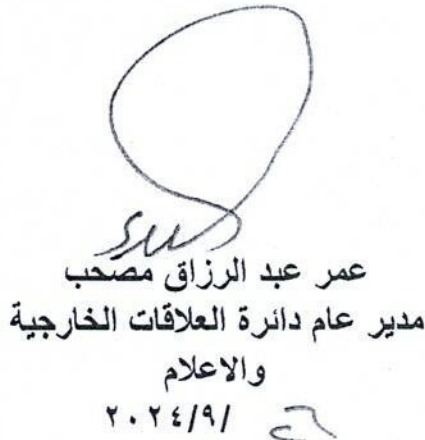 عمر عبد الرزاق مصحب
مدير عام دائرة العلاقات الخارجية
والاعلام
٢٠٢٤/٩/